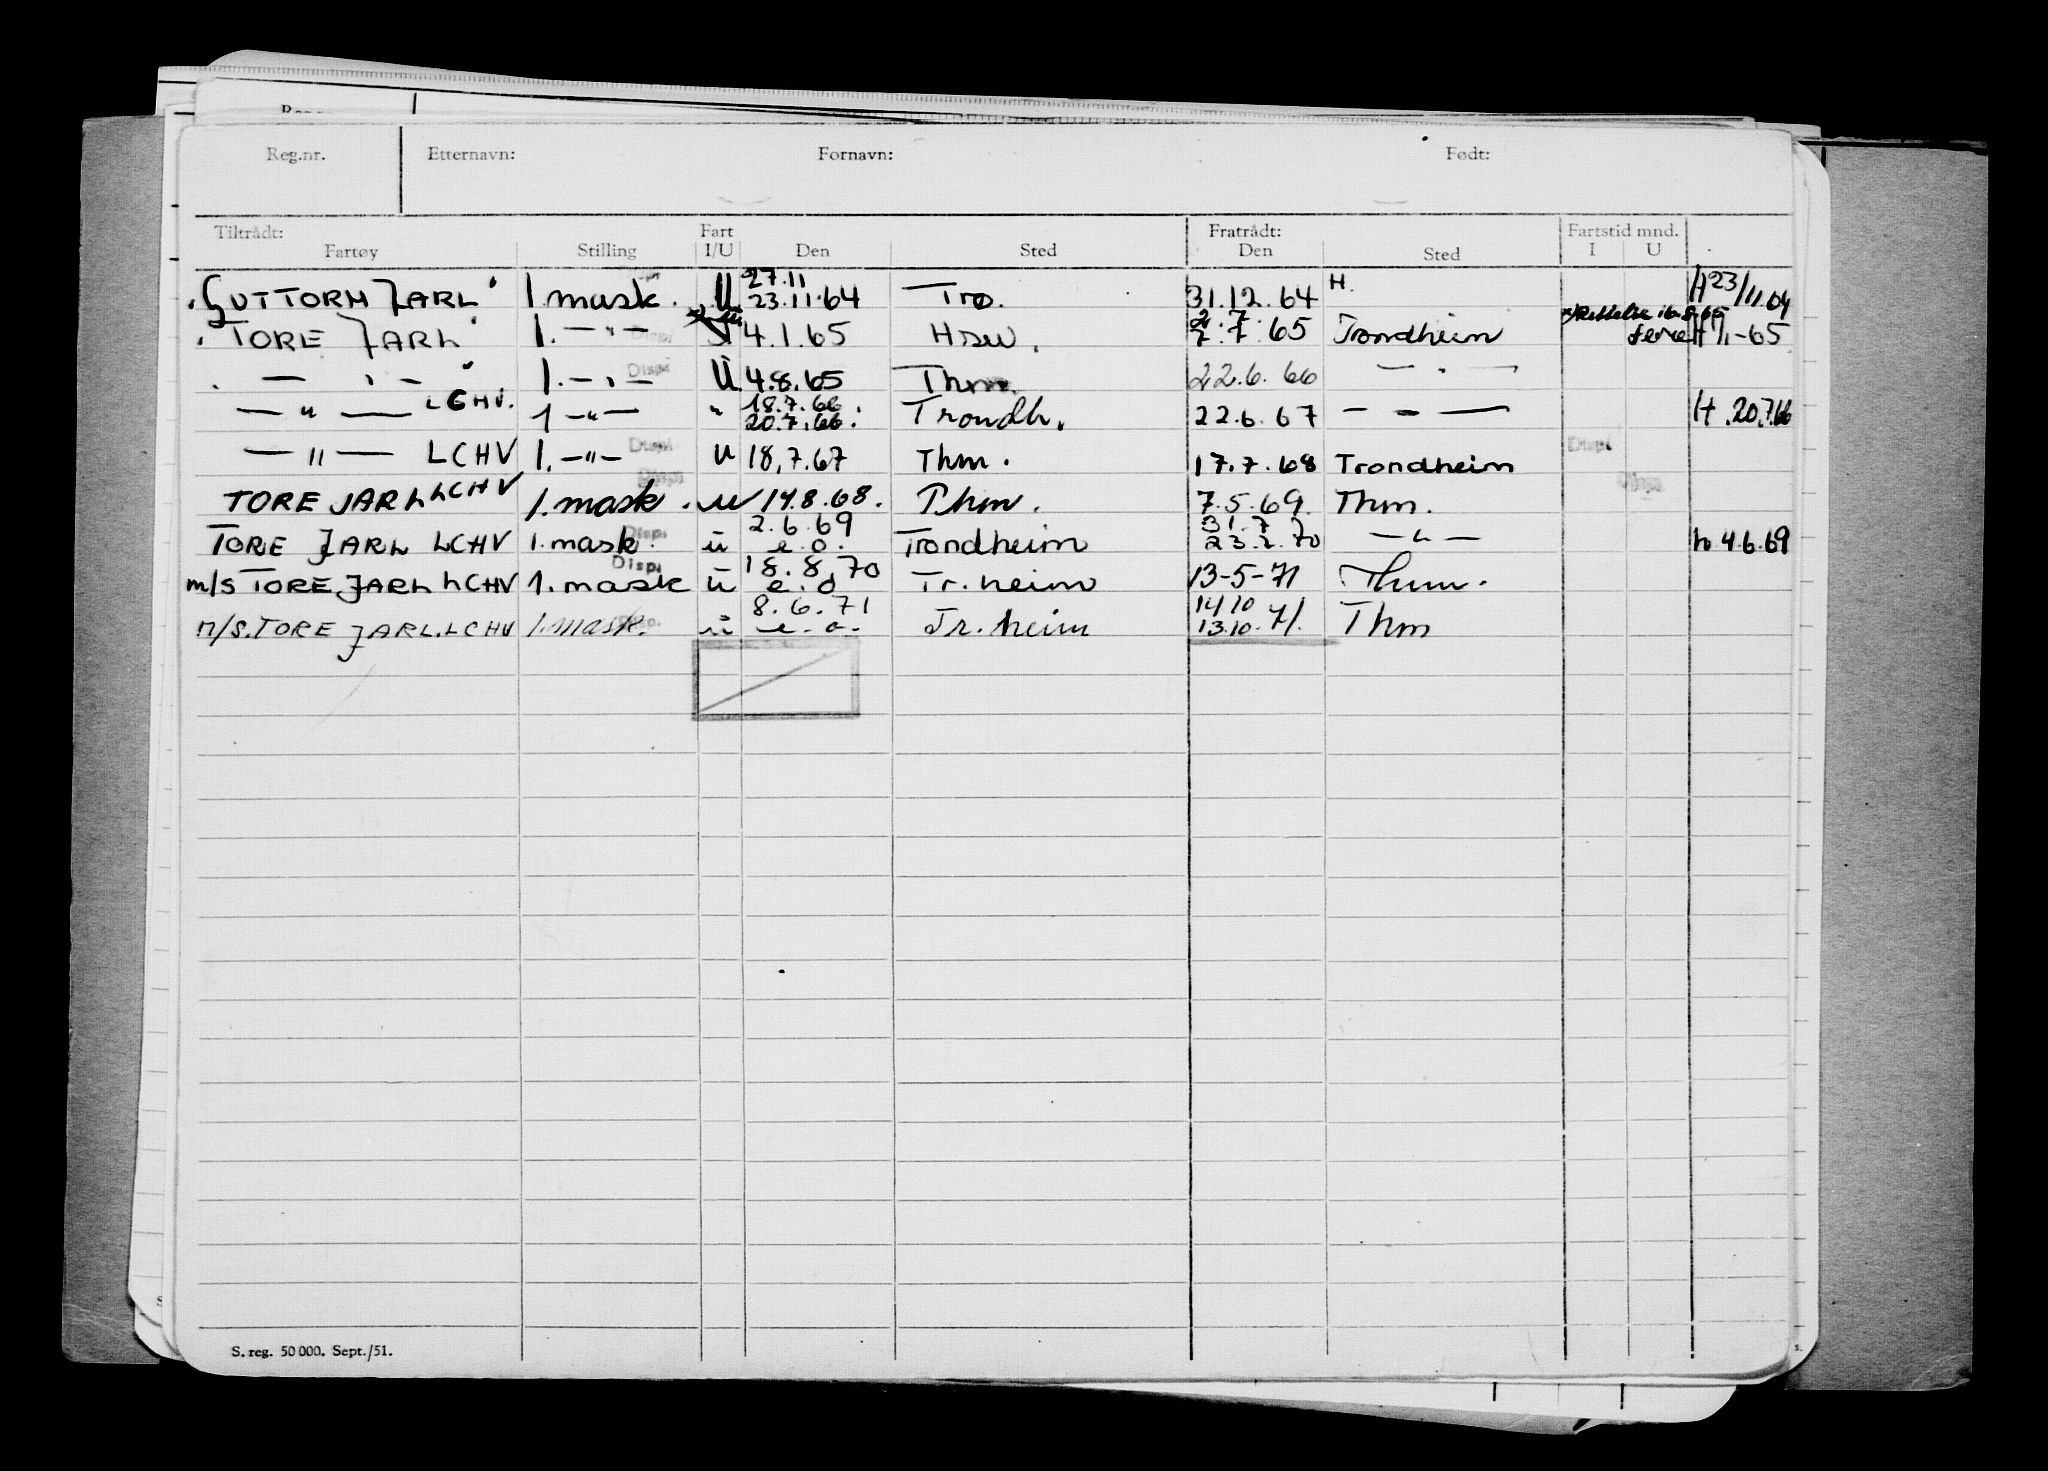 Reg.nr. Etternavn: Fornavn: Født:
Tiltrådt: Fart Fratrådt: Fartstid mnd.
Fartøy Stilling I/U Den Sted Den Sted I U
27.11
"GUTTORM JARL" 1. mask. U 23.11.64 Tro. 31.12.64 H. H 23/11.64
x) Rettelse 16.8.65
2.7.
"TORE JARL" 1. —"— 4.1.65 7.7.65 Trondheim ferie H 9/1-65
" — " — " 1. —"— Displ U 4.8.65 Thm. 22.6.66 — " —
18.7.66
— " — LCHV. 1 —"— " 20.7.66. Trondh. 22.6.67 — " — H. 20.7.66
— " — LCHV 1. —"— Displ U 18.7.67 Thm. 17.7.68 Trondheim Displ
TORE JARL LCHV 1. mask. Displ U 14.8.68. Thm. 7.5.69. Thm. Disp
2.6.69 31.7.70
TORE JARL LCHV 1. mask. Displ u e.o. Trondheim 23.2.70 — " — h 4.6.69
18.8.70
m/s TORE JARL LCHV 1. mask Displ u e.o Tr.heim 13-5-71 Thm.
8.6.71 14/10
M/S. TORE JARL. LCHV 1. mask. Disp. u e.o. Tr.heim 13.10.71. Thm
S. reg. 50 000. Sept./51.